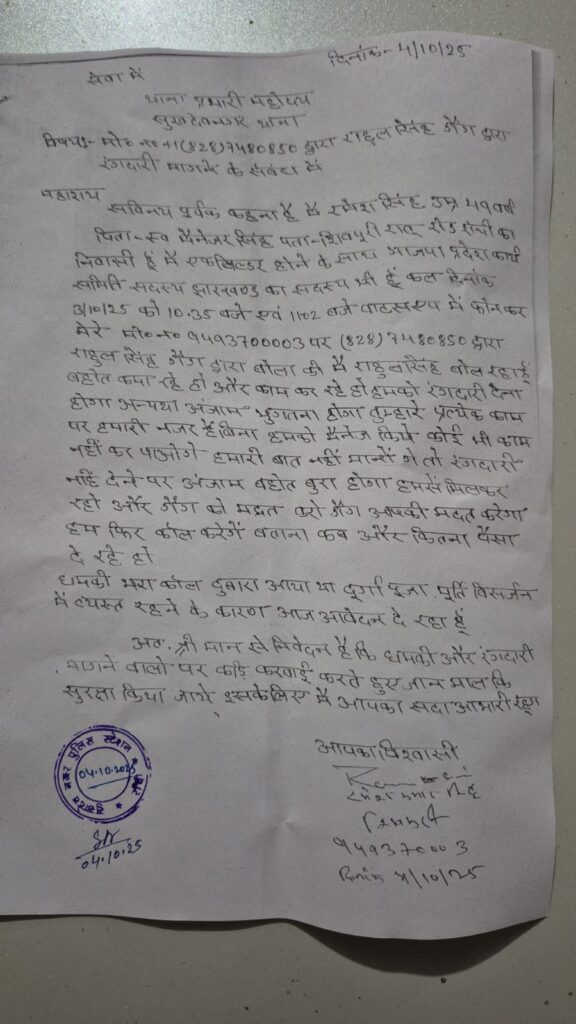 दिनांक- 4/10/25
सेवा में
थाना प्रभारी महोदय
सुखदेवनगर थाना
विषय:- मो० no +1(828)7480850 द्वारा राहुल सिंह गैंग द्वारा
रंगदारी मागने के संबंध में
महाशय
सविनय पूर्वक कहना है मै रमेश सिंह उम्र 49 वर्ष
पिता-स्व मैनेजर सिंह पता-शिवपुरी रातू रोड रांची का
निवासी हूँ मै एक बिल्डर होने के साथ भाजपा प्रदेश कार्य
समिति सदस्य झारखण्ड का सदस्य भी हूँ कल दिनांक
3/10/25 को 10:35 बजे एवं 11:02 बजे वाटसएप में फोन कर
मेरे मो० no 9493700003 पर (828)7480850 द्वारा
राहुल सिंह गैंग द्वारा बोला की मै राहुल सिंह बोल रहा हूँ
बहोत कमा रहे हो और काम कर रहे हो हमको रंगदारी देना
होगा अन्यथा अंजाम भुगतना होगा तुम्हारे प्रत्येक काम
पर हमारी नजर है बिना हमको मैनेज किये कोई भी काम
नहीं कर पाओगे हमारी बात नहीं मानोंगे तो रंगदारी
नहिं देने पर अंजाम बहोत बुरा होगा हमसें मिलकर
रहो और गैंग को मदत करो गैंग आपकी मदत करेगा
हम फिर कॉल करेगें बताना कब और कितना पैसा
दे रहे हो
धमकी भरा कॉल दुबारा आया था दुर्गा पुजा, मुर्ति विसर्जन
में व्यस्त रहने के कारण आज आवेदन दे रहा हूँ
अतः श्री मान से निवेदन है कि धमकी और रंगदारी
मागने वालो पर कड़ि करवाई करते हुए जान माल कि
सुरक्षा किया जाये इसके लिए मै आपका सदा आभारी रहूंगा
आपका विश्वासी
रमेश कुमार सिंह
9493700003
दिनांक 4/10/25
सुखदेव नगर पुलिस स्टेशन
04.10.2025
04.10.25